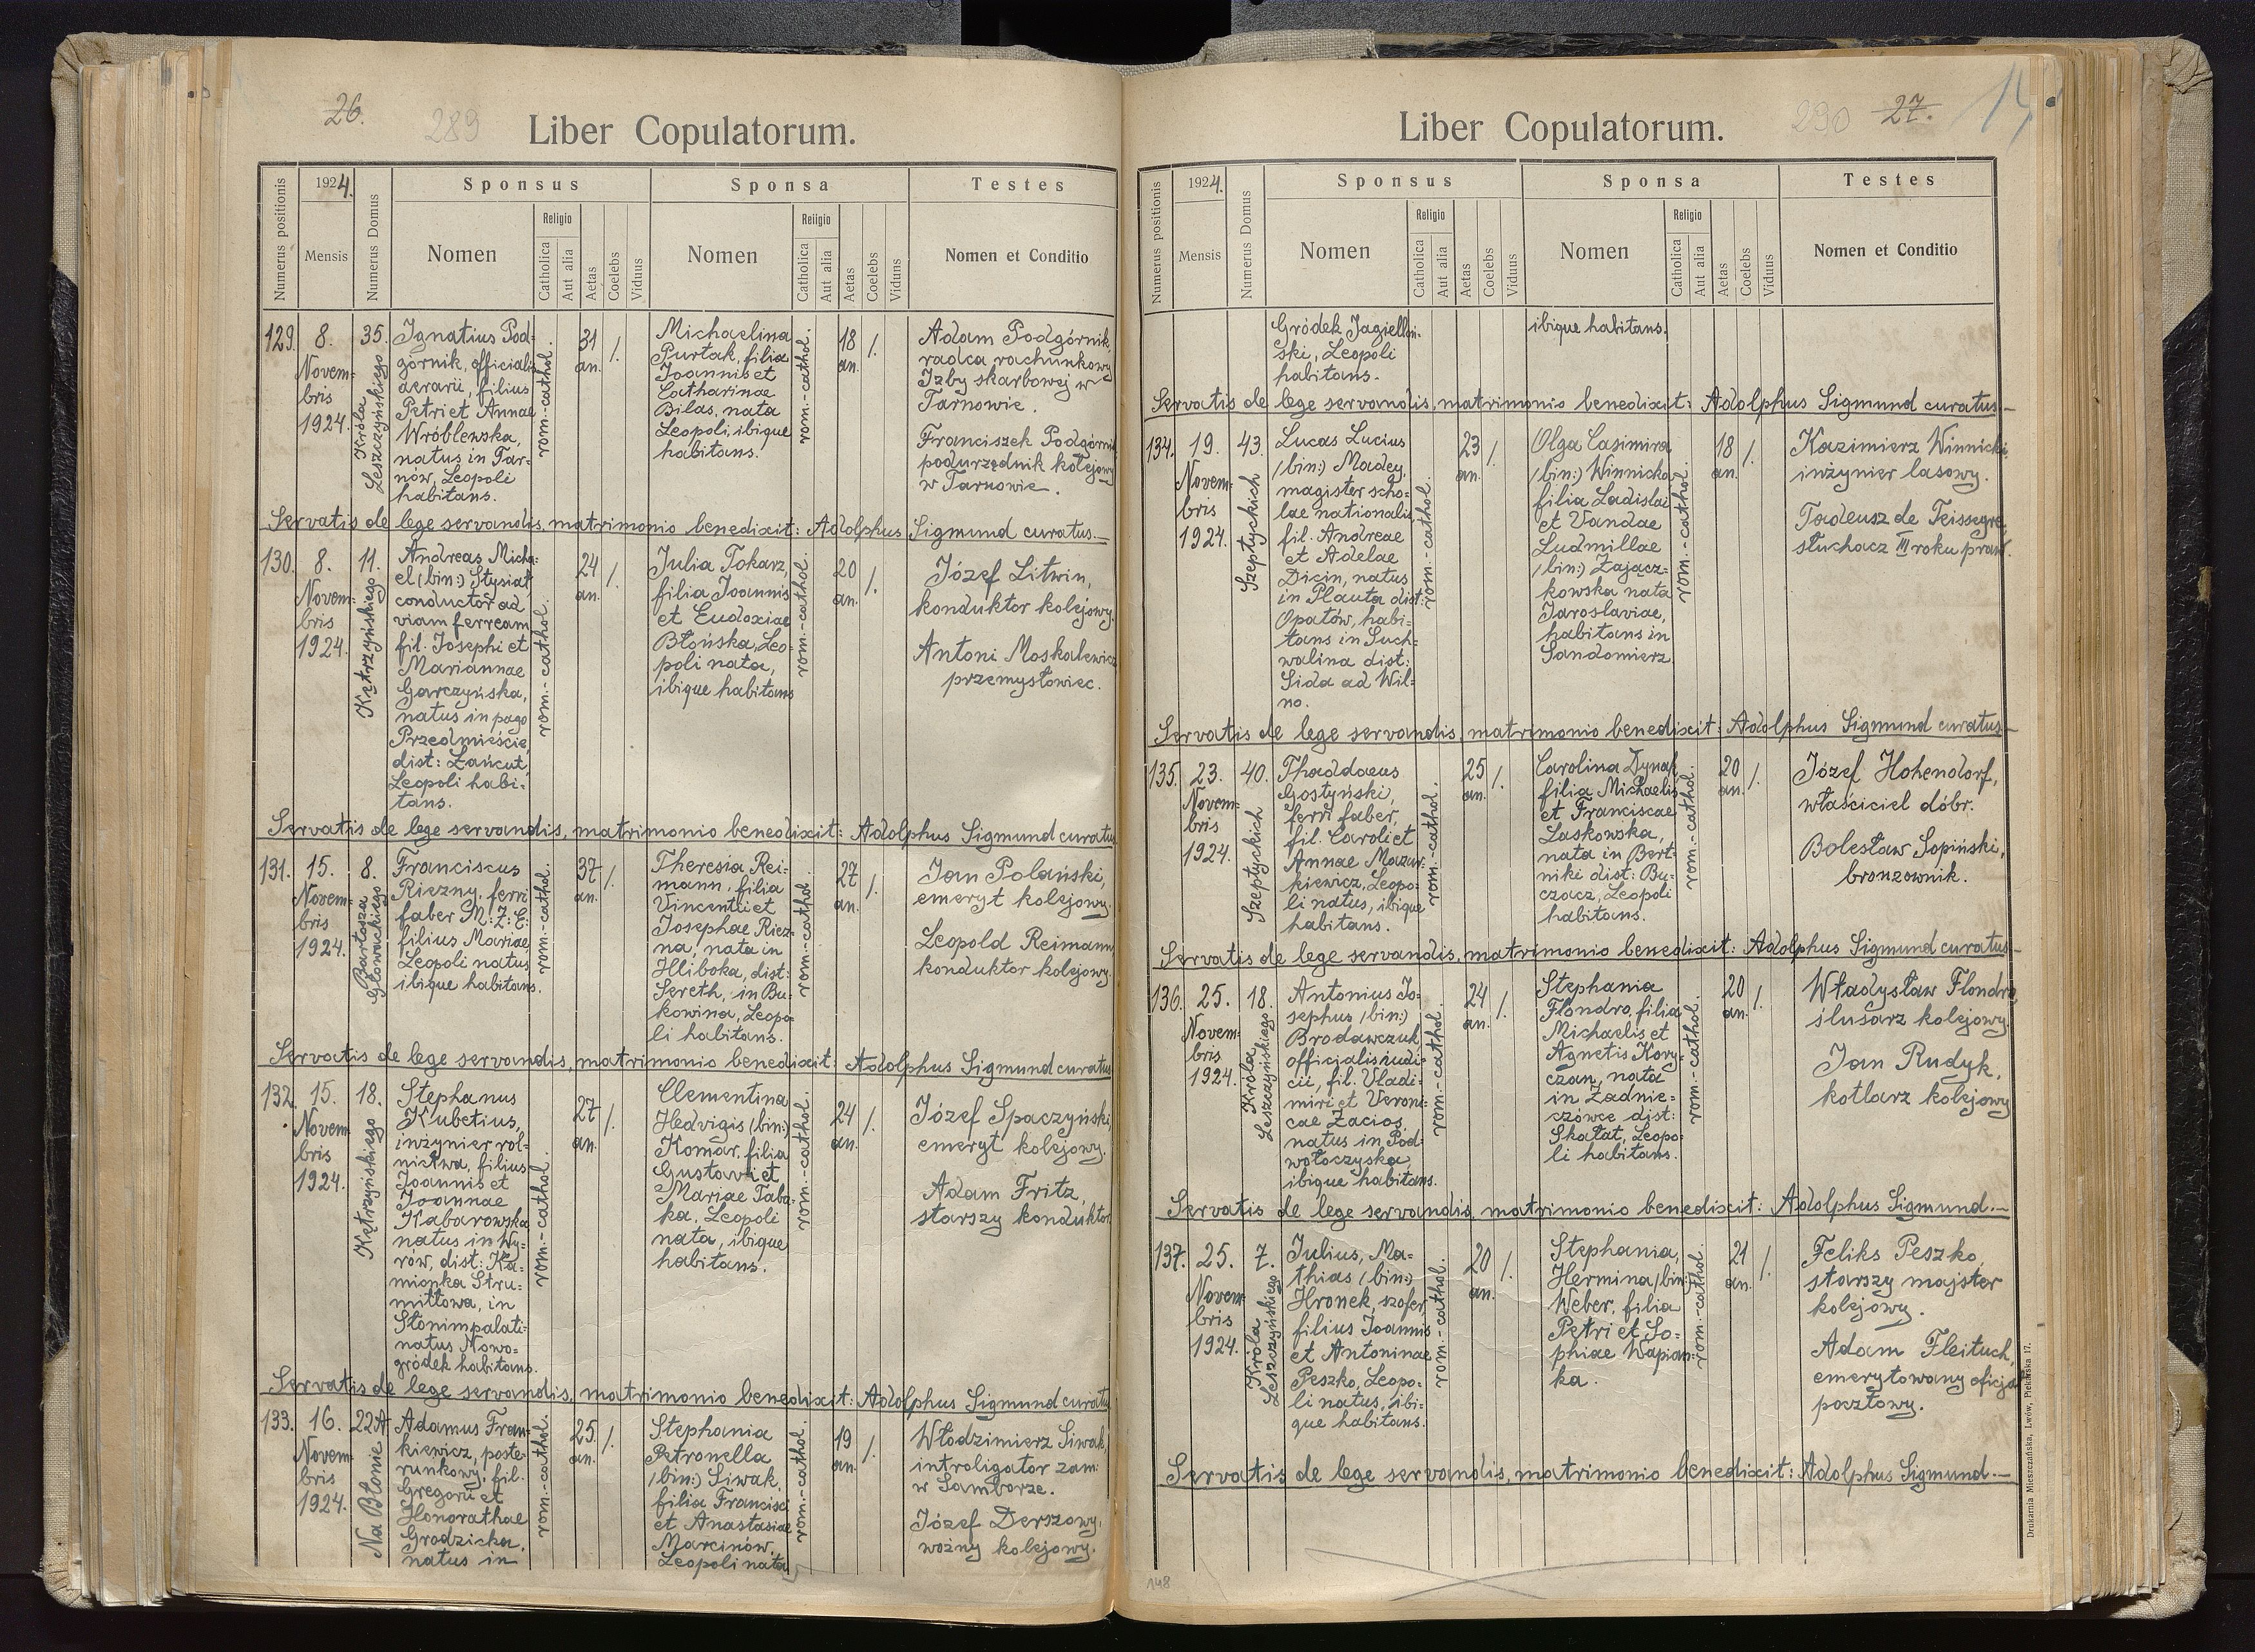 26.
289
Liber Copulatorum.
Numerus positionis
1924.
Mensis
Numerus Domus
Sponsus
Nomen
Religio
Catholica
Aut alia
Aetas
Coelebs
Viduus
Sponsa
Nomen
Religio
Catholica
Aut alia
Aetas
Coelebs
Viduns
Testes
Nomen et Conditio
129.
8.
Novem-
bris
1924.
35.
Króla
Leszczyńskiego
Ignatius Pod-
górnik, officialis
aerarii, filius
Petri et Annae
Wróblewska,
natus in Tar-
nów, Leopoli
habitans.
rom.-cathol.
31
an.
/.
Michaelina
Purtak, filia
Joannis et
Catharinae
Bilas, nata
Leopoli, ibique
habitans.
rom.-cathol.
18
an.
/.
Adam Podgórnik,
radca rachunkowy
Izby skarbowej w
Tarnowie.
Franciszek Podgórnik
podurzędnik kolejowy
w Tarnowie.
Servatis de lege servandis, matrimonio benedixit: Adolphus Sigmund curatus.—
130.
8.
Novem-
bris
1924.
11.
Kętrzyńskiego
Andreas Micha-
el (bin:) Stysiał,
conductor ad
viam ferream
fil. Josephi et
Mariannae
Garczyńska,
natus in pago
Przedmieście,
dist: Łańcut,
Leopoli habi-
tans.
rom.-cathol.
24
an.
/.
Julia Tokarz,
filia Joannis
et Eudoxiae
Błońska, Leo-
poli nata,
ibique habitans
rom.-cathol.
20
an.
/.
Józef Litwin,
konduktor kolejowy.
Antoni Moskalewicz
przemysłowiec.
Servatis de lege servandis, matrimonio benedixit: Adolphus Sigmund curatus
131.
15.
Novem-
bris
1924.
8.
Bartosza
Głowackiego
Franciscus
Riezny, ferri
faber M: Z: E:
filius Mariae
Leopoli natus
ibique habitans.
rom.-cathol.
37
an.
/.
Theresia Rei-
mann, filia
Vincentii et
Josephae Riez-
na, nata in
Hliboka, dist:
Sereth, in Bu-
kowina, Leopo-
li habitans.
rom.-cathol.
27
an.
/.
Jan Polański,
emeryt kolejowy.
Leopold Reimann
konduktor kolejowy.
Servatis de lege servandis, matrimonio benedixit: Adolphus Sigmund curatus
132.
15.
Novem-
bris
1924.
18.
Kętrzyńskiego
Stephanus
Kubetius,
inżynier rol-
nictwa, filius
Joannis et
Joannae
Kabarowska
natus in Wy-
rów, dist: Ka-
mionka Stru-
miłłowa, in
Słonim palati-
natus Nowo-
gródek habitans.
rom.-cathol.
27
an.
/.
Clementina
Hedvigis (bin:)
Komar, filia
Gustavi et
Mariae Taba-
ka, Leopoli
nata, ibique
habitans.
rom.-cathol.
24
an.
/.
Józef Spaczyński,
emeryt kolejowy.
Adam Fritz,
starszy konduktor
Servatis de lege servandis, matrimonio benedixit: Adolphus Sigmund curatus
133.
16.
Novem-
bris
1924.
22A
Na Błonie
Adamus Fran-
kiewicz, poste-
runkowy, fil.
Gregorii et
Honorathae
Grodzicka,
natus in
rom.-cathol.
25
an.
/.
Stephania
Petronella
(bin:) Siwak,
filia Francisci
et Anastasiae
Marcinów,
Leopoli nata,
rom.-cathol.
19
an.
/.
Włodzimierz Siwak,
introligator zam.
w Samborze.
Józef Derszowy,
woźny kolejowy.
Liber Copulatorum.
290
27.
Numerus positionis
1924.
Mensis
Numerus Domus
Sponsus
Nomen
Religio
Catholica
Aut alia
Aetas
Coelebs
Viduus
Sponsa
Nomen
Religio
Catholica
Aut alia
Aetas
Coelebs
Viduus
Testes
Nomen et Conditio
Gródek Jagielloń-
ski, Leopoli
habitans.
ibique habitans.
Servatis de lege servandis, matrimonio benedixit: Adolphus Sigmund curatus.—
134.
19.
Novem-
bris
1924.
43.
Szeptyckich
Lucas Lucius
(bin:) Madey,
magister scho-
lae nationalis
fil. Andreae
et Adelae
Dicin, natus
in Planta dist:
Opatów, habi-
tans in Such-
walina dist:
Lida ad Wil-
no.
rom.-cathol.
23
an.
/.
Olga Casimira
(bin:) Winnicka
filia Ladislai
et Vandae
Ludmillae
(bin:) Zającz-
kowska nata
Jaroslaviae,
habitans in
Sandomierz
rom.-cathol.
18
an.
/.
Kazimierz Winnicki,
inżynier lasowy.
Tadeusz de Teisseyre,
słuchacz III roku praw.
Servatis de lege servandis, matrimonio benedixit: Adolphus Sigmund curatus.—
135.
23.
Novem-
bris
1924.
40.
Szeptyckich
Thaddaeus
Gostyński,
ferri faber,
fil. Caroli et
Annae Mazur-
kiewicz, Leopo-
li natus, ibique
habitans.
rom.-cathol.
25
an.
/.
Carolina Dynak
filia Michaelis
et Franciscae
Laskowska,
nata in Bert-
niki dist: Bu-
czacz, Leopoli
habitans.
rom.-cathol.
20
an.
/.
Józef Hohendorf,
właściciel dóbr.
Bolesław Sopiński,
bronzownik.
Servatis de lege servandis, matrimonio benedixit: Adolphus Sigmund curatus.—
136.
25.
Novem-
bris
1924.
18.
Króla
Leszczyńskiego
Antonius Jo-
sephus (bin:)
Brodawczuk
officialis iudi-
cii, fil. Vladi-
miri et Veroni-
cae Zacios,
natus in Pod-
wołoczyska,
ibique habitans.
rom.-cathol.
24
an.
/.
Stephania
Flondro, filia
Michaelis et
Agnetis Kory-
czan, nata
in Zadnie-
szówce dist:
Skałat, Leopo-
li habitans.
rom.-cathol.
20
an.
/.
Władysław Flondro,
ślusarz kolejowy.
Jan Rudyk,
kotlarz kolejowy
Servatis de lege servandis, matrimonio benedixit: Adolphus Sigmund.—
137.
25.
Novem-
bris
1924.
7.
Króla
Leszczyńskiego
Julius, Ma-
thias (bin:)
Hronek, szofer,
filius Joannis
et Antoninae
Peszko, Leopo-
li natus, ibi-
que habitans.
rom.-cathol.
20
an.
/.
Stephania,
Hermina (bin:)
Weber, filia
Petri et So-
phiae Wapian-
ka.
rom.-cathol.
21
an.
/.
Feliks Peszko,
starszy majster
kolejowy.
Adam Fleituch,
emerytowany oficjał
pocztowy.
Servatis de lege servandis, matrimonio benedixit: Adolphus Sigmund.—
Drukarnia Mieszczańska, Lwów, Piekarska 17.
148